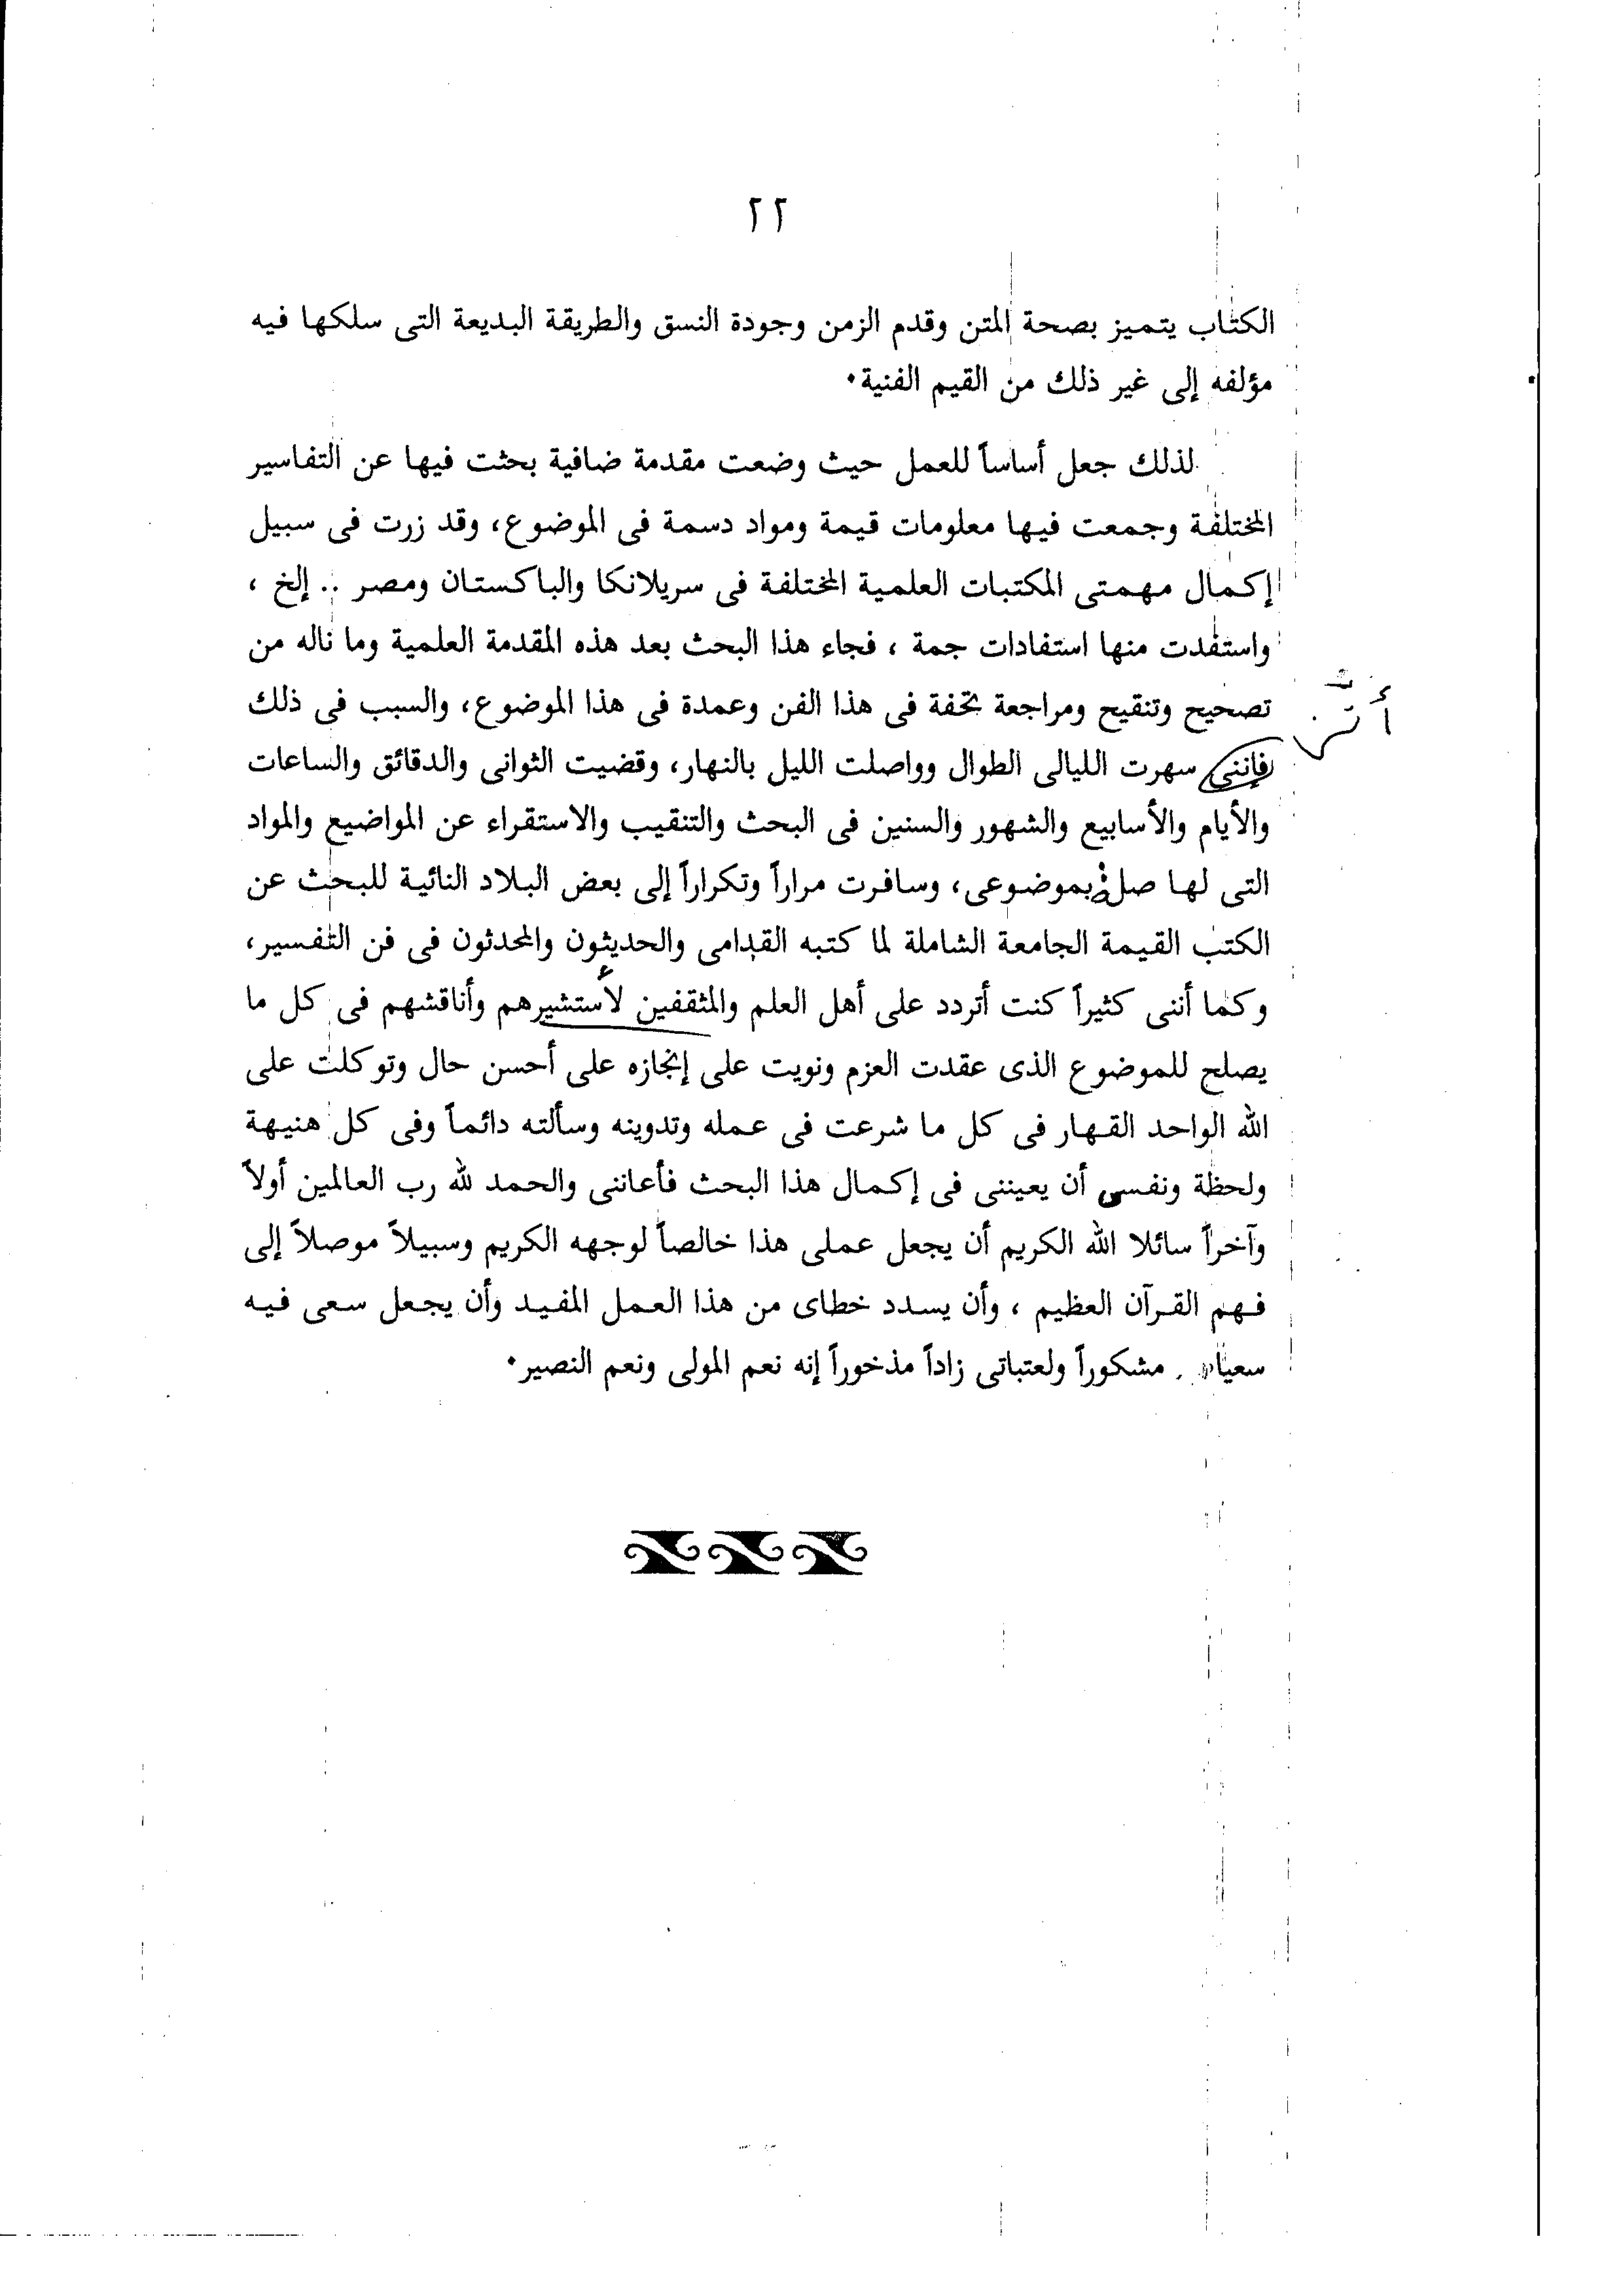 ٢٢
الكتاب يتميز بصحة المتن وقدم الزمن وجودة النسق والطريقة البديعة التى سلكها فيه
مؤلفه إلى غير ذلك من القيم الفنية.
لذلك جعل أساساً للعمل حيث وضعت مقدمة ضافية بحثت فيها عن التفاسير
المختلفة وجمعت فيها معلومات قيمة ومواد دسمة فى الموضوع، وقد زرت فى سبيل
إكمال مهمتى المكتبات العلمية المختلفة فى سريلانكا والباكستان ومصر .. إلخ ،
واستفدت منها استفادات جمة ، فجاء هذا البحث بعد هذه المقدمة العلمية وما ناله من
تصحيح وتنقيح ومراجعة تحفة فى هذا الفن وعمدة فى هذا الموضوع، والسبب فى ذلك
أننى
فإننى سهرت الليالى الطوال وواصلت الليل بالنهار، وقضيت الثوانى والدقائق والساعات
والأيام والأسابيع والشهور والسنين فى البحث والتنقيب والاستقراء عن المواضيع والمواد
التى لها صلة بموضوعى، وسافرت مراراً وتكراراً إلى بعض البلاد النائية للبحث عن
الكتب القيمة الجامعة الشاملة لما كتبه القدامى والحديثون والمحدثون فى فن التفسير،
وكما أننى كثيراً كنت أتردد على أهل العلم والمثقفين لأستشيرهم وأناقشهم فى كل ما
يصلح للموضوع الذى عقدت العزم ونويت على إنجازه على أحسن حال وتوكلت على
الله الواحد القهار فى كل ما شرعت فى عمله وتدوينه وسألته دائماً وفى كل هنيهة
ولحظة ونفس أن يعيننى فى إكمال هذا البحث فأعاننى والحمد لله رب العالمين أولاً
وآخراً سائلا الله الكريم أن يجعل عملى هذا خالصاً لوجهه الكريم وسبيلاً موصلاً إلى
فهم القرآن العظيم ، وأن يسدد خطاى من هذا العمل المفيد وأن يجعل سعى فيه
سعيا مشكوراً ولعتباتى زاداً مذخوراً إنه نعم المولى ونعم النصير.